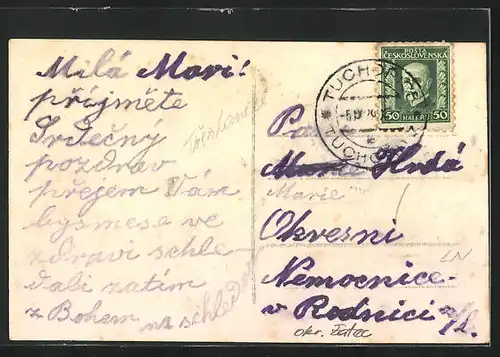 Milá Mari!
příjměte
Srdečný
pozdrav
přejem Vám
bysmese ve
zdraví schle-
dali zatím
z Bohem na schledan
POSTA
ČESKOSLOVENSKÁ
50 HALÉŘŮ 50
TUCHO
TUCHO
Hrdá
Marie
Okresni
Nemocnice
v Rodnici
okr. Žatec
LN